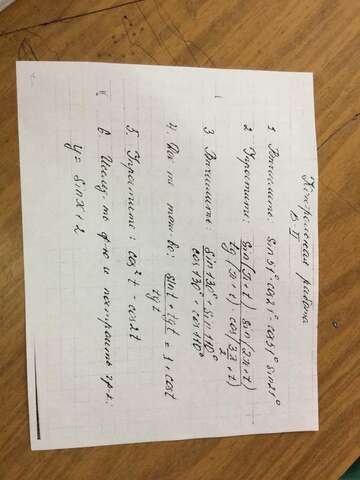 Контрольная работа
В II
1 Вычислите: sin 51° cos 21° - cos 51° sin 21°
2 Упростите: sin(π+t) sin(2π+t) / tg(π+t) · cos(3π/2+t)
3 Вычислите: sin 130° + sin 110° / cos 130° + cos 110°
4. Док-ть тож-во: sin t + tg t / tg t = 1 + cos t
5. Упростите: cos² t - cos 2t
6 Исслед-ть ф-ю и построить гр-к:
y = sin x + 2